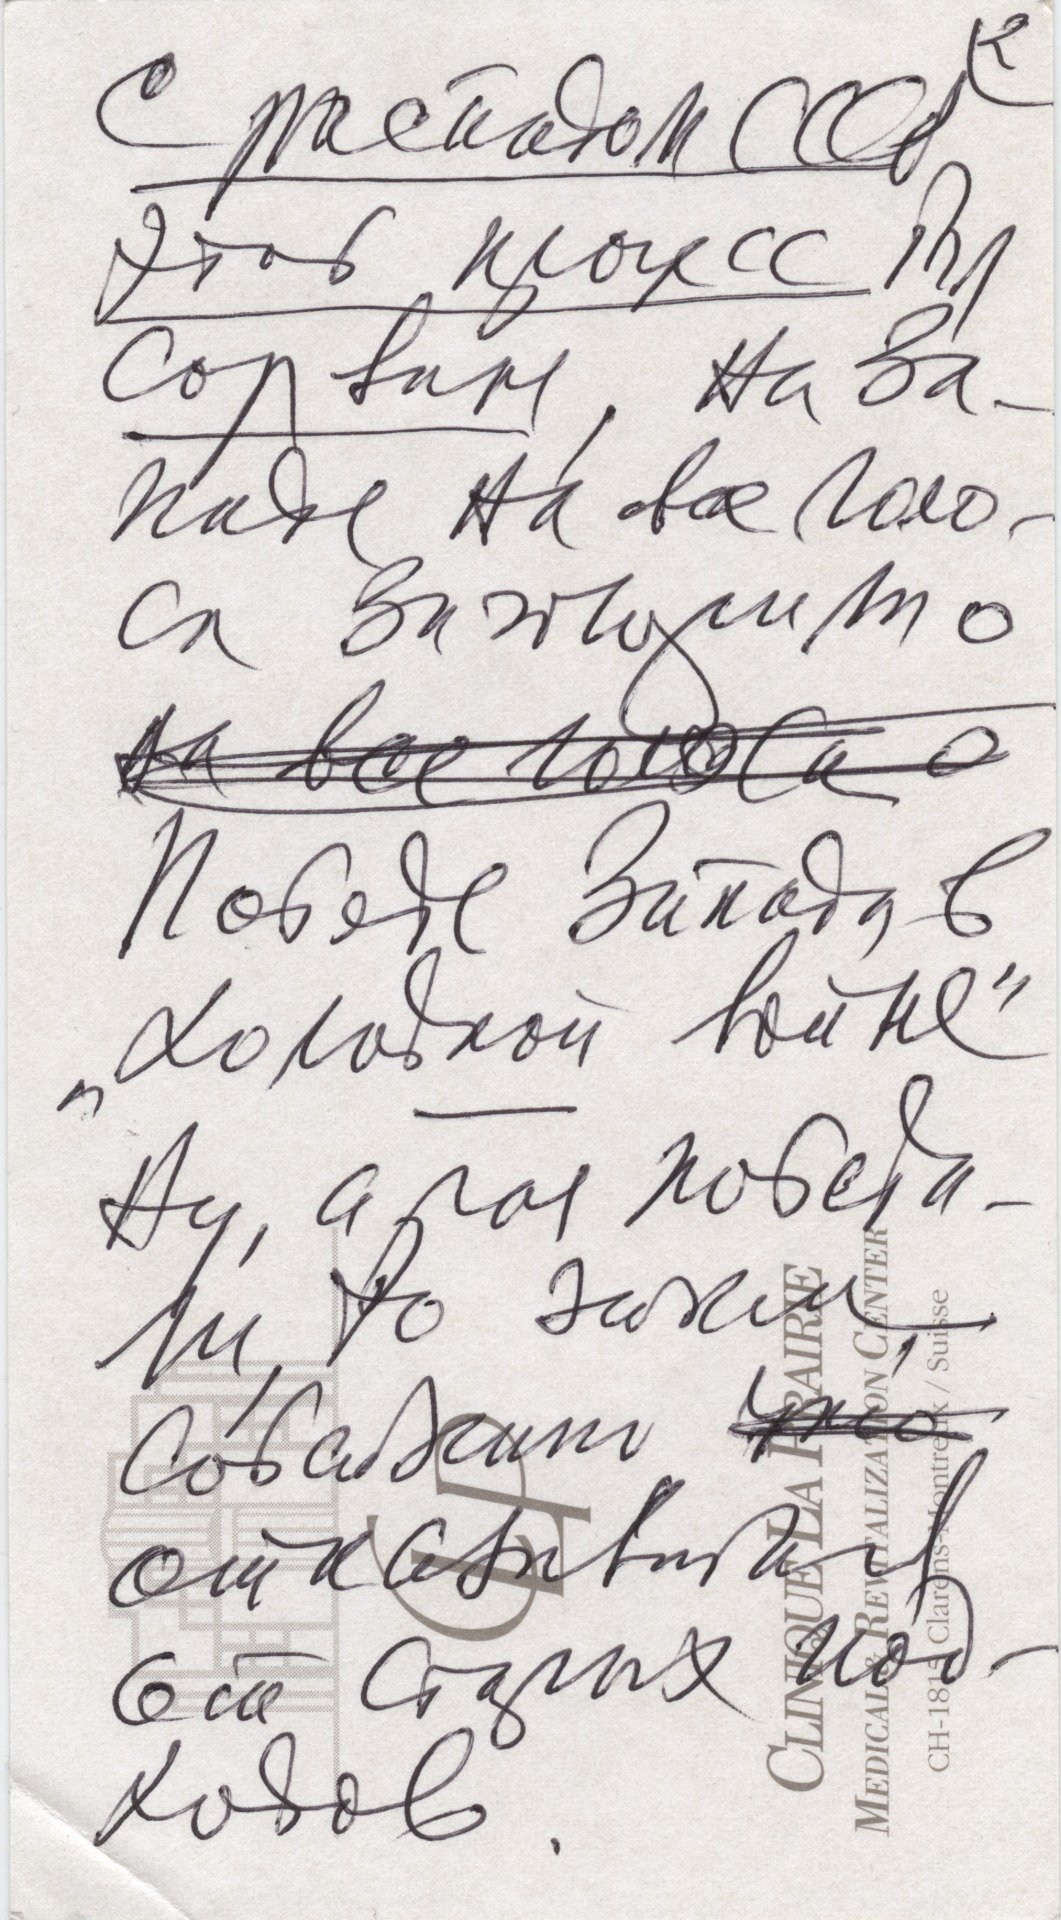 2
С распадом СССР
этот процесс был
сорван, на За-
паде на все голо-
са заговорили о
на все голоса о
Победе Запада в
„холодной войне"
Ну, а раз победи-
ли, то зачем,
собственно
отказываться
от старых под-
ходов.
CLINIQUE LA PRAIRIE
MEDICAL & REVITALIZATION CENTER
CH-1815 Clarens-Montreux / Suisse